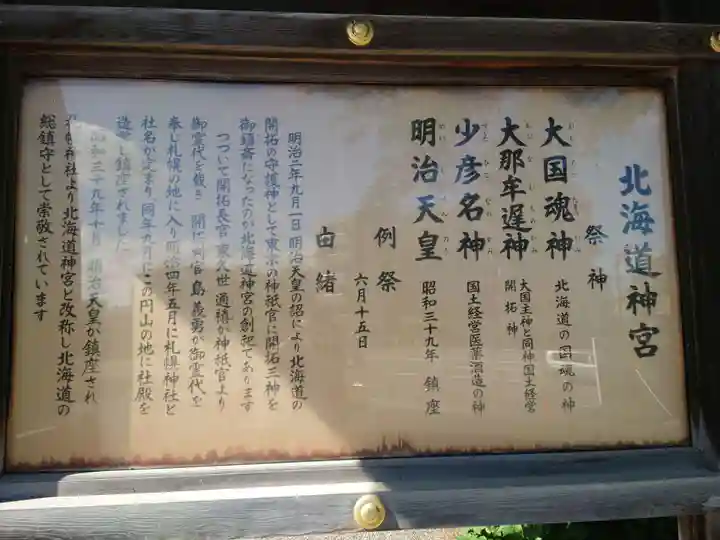 北海道神宮
祭神
大国魂神 北海道の国魂の神
大那牟遅神 大国主神と同神国土経営
開拓神
少彦名神 国土経営医薬酒造の神
明治天皇 昭和三十九年 鎮座
例祭
六月十五日
由緒
明治二年九月一日明治天皇の詔により北海道の
開拓の守護神として東京の神祇官に開拓三神を
御鎮斎になったのが北海道神宮の創祀であります
つづいて開拓長官東久世通禧が神祇官より
御霊代を戴き 開拓判官島義勇が御霊代を
奉じ札幌の地に入り明治四年五月に札幌神社と
社名が定まり 同年九月にこの円山の地に社殿を
造営し鎮座されました
昭和三十九年十月 明治天皇が鎮座され
札幌神社より北海道神宮と改称し北海道の
総鎮守として崇敬されています